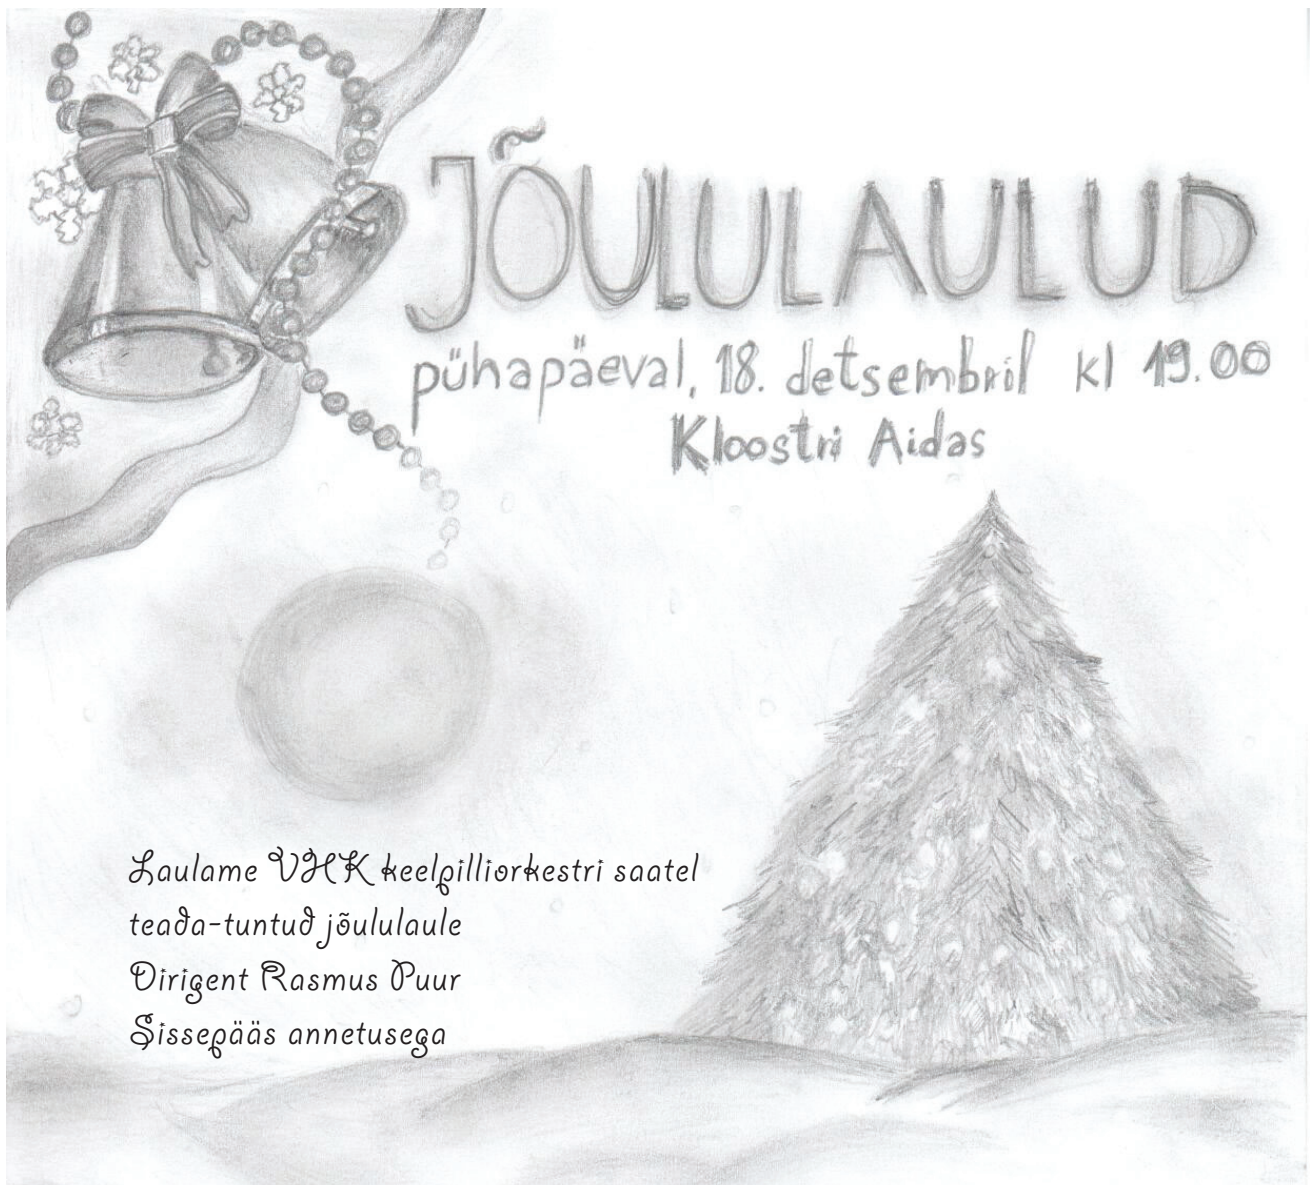 JÕULULAULUD
pühapäeval, 18. detsembril kl 19.00
Kloostri Aidas
Laulame VHK keelpilliorkestri saatel
teada-tuntud jõululaule
Dirigent Rasmus Puur
Sissepääs annetusega